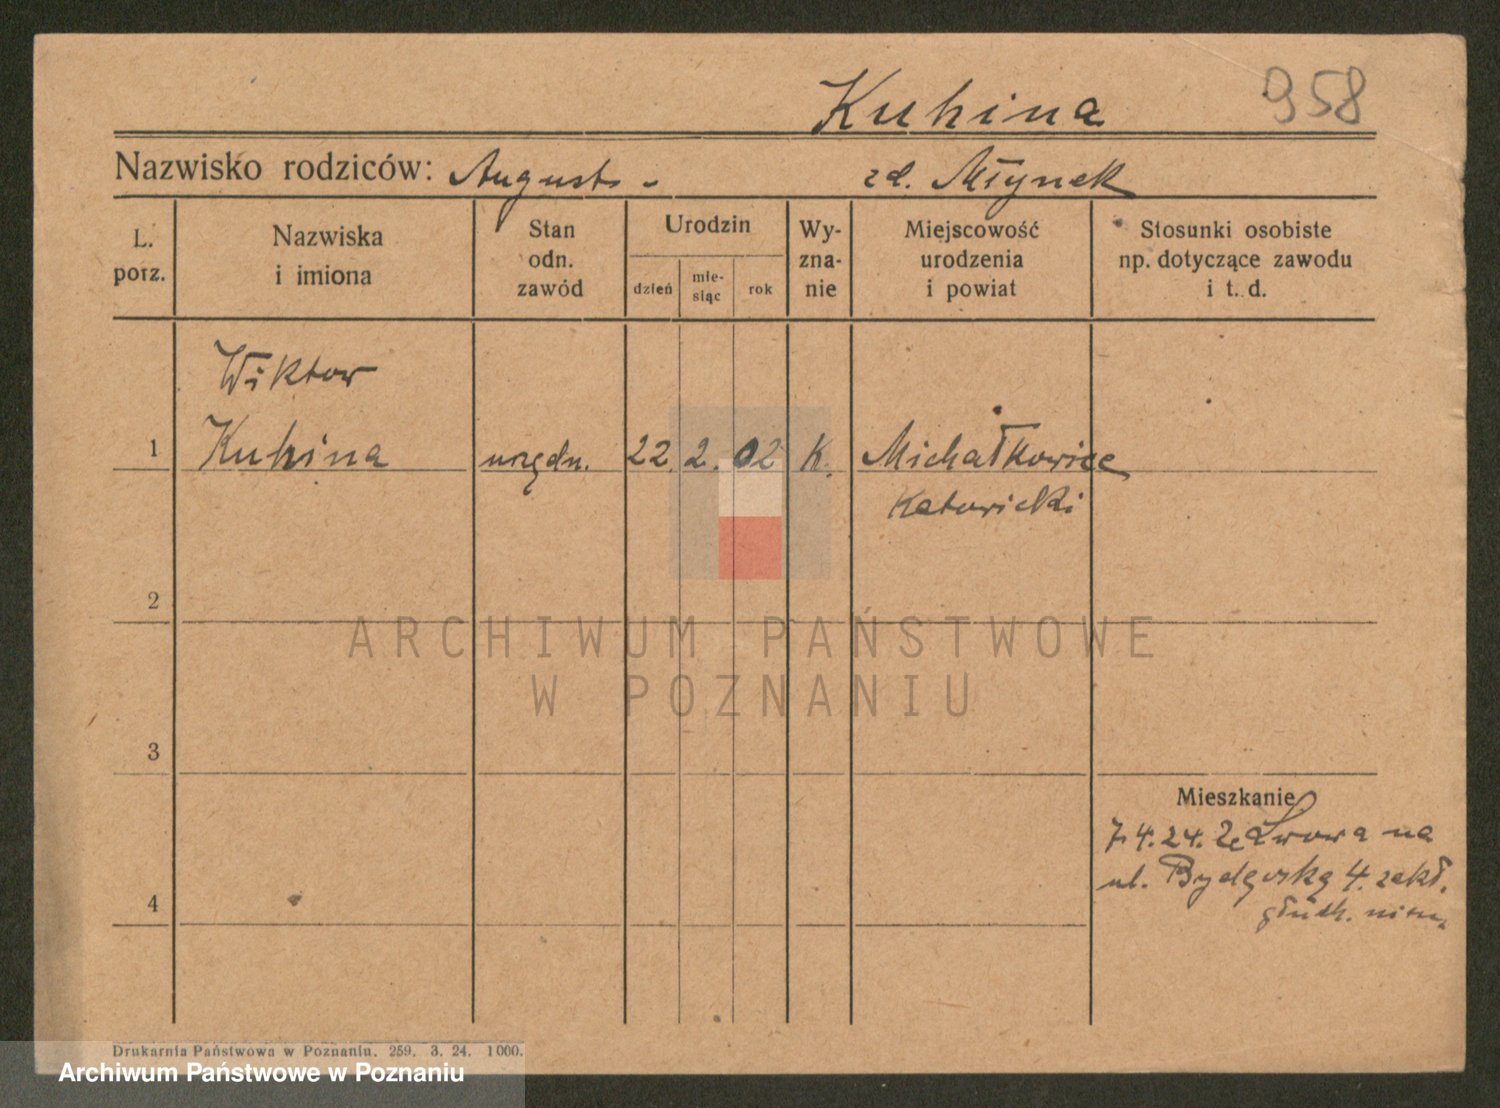 Kuhina 958
Nazwisko rodziców: August - zd. Młynek
L. porz. Nazwiska i imiona Stan odn. zawód Urodzin dzień mie-siąc rok Wy-zna-nie Miejscowość urodzenia i powiat Stosunki osobiste np. dotyczące zawodu i t. d.
Wiktor
1 Kuhina urzędn. 22 2. 02 K. Michałkowice
Katowicki
2
ARCHIWUM PAŃSTWOWE
W POZNANIU
3
Mieszkanie
7.4.24. Ze Lwowa na
ul. Bydgoską 4. zakł.
głuch. niem.
4
Drukarnia Państwowa w Poznaniu. 259. 3. 24. 1000.
Archiwum Państwowe w Poznaniu